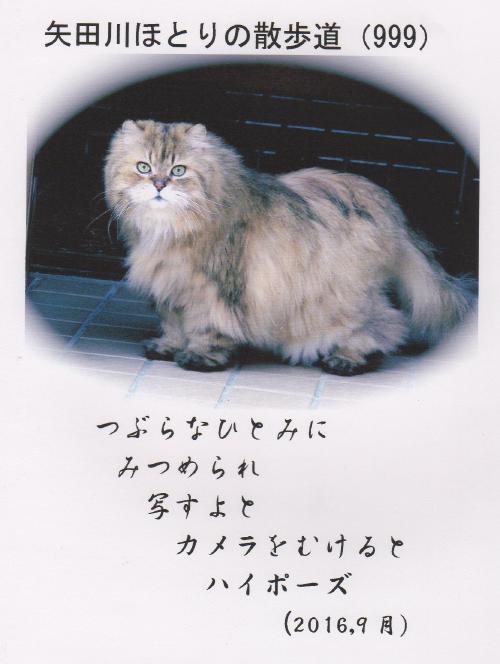 矢田川ほとりの散歩道（999）
つぶらなひとみに
みつめられ
写すよと
カメラをむけると
ハイポーズ
(2016,9月)